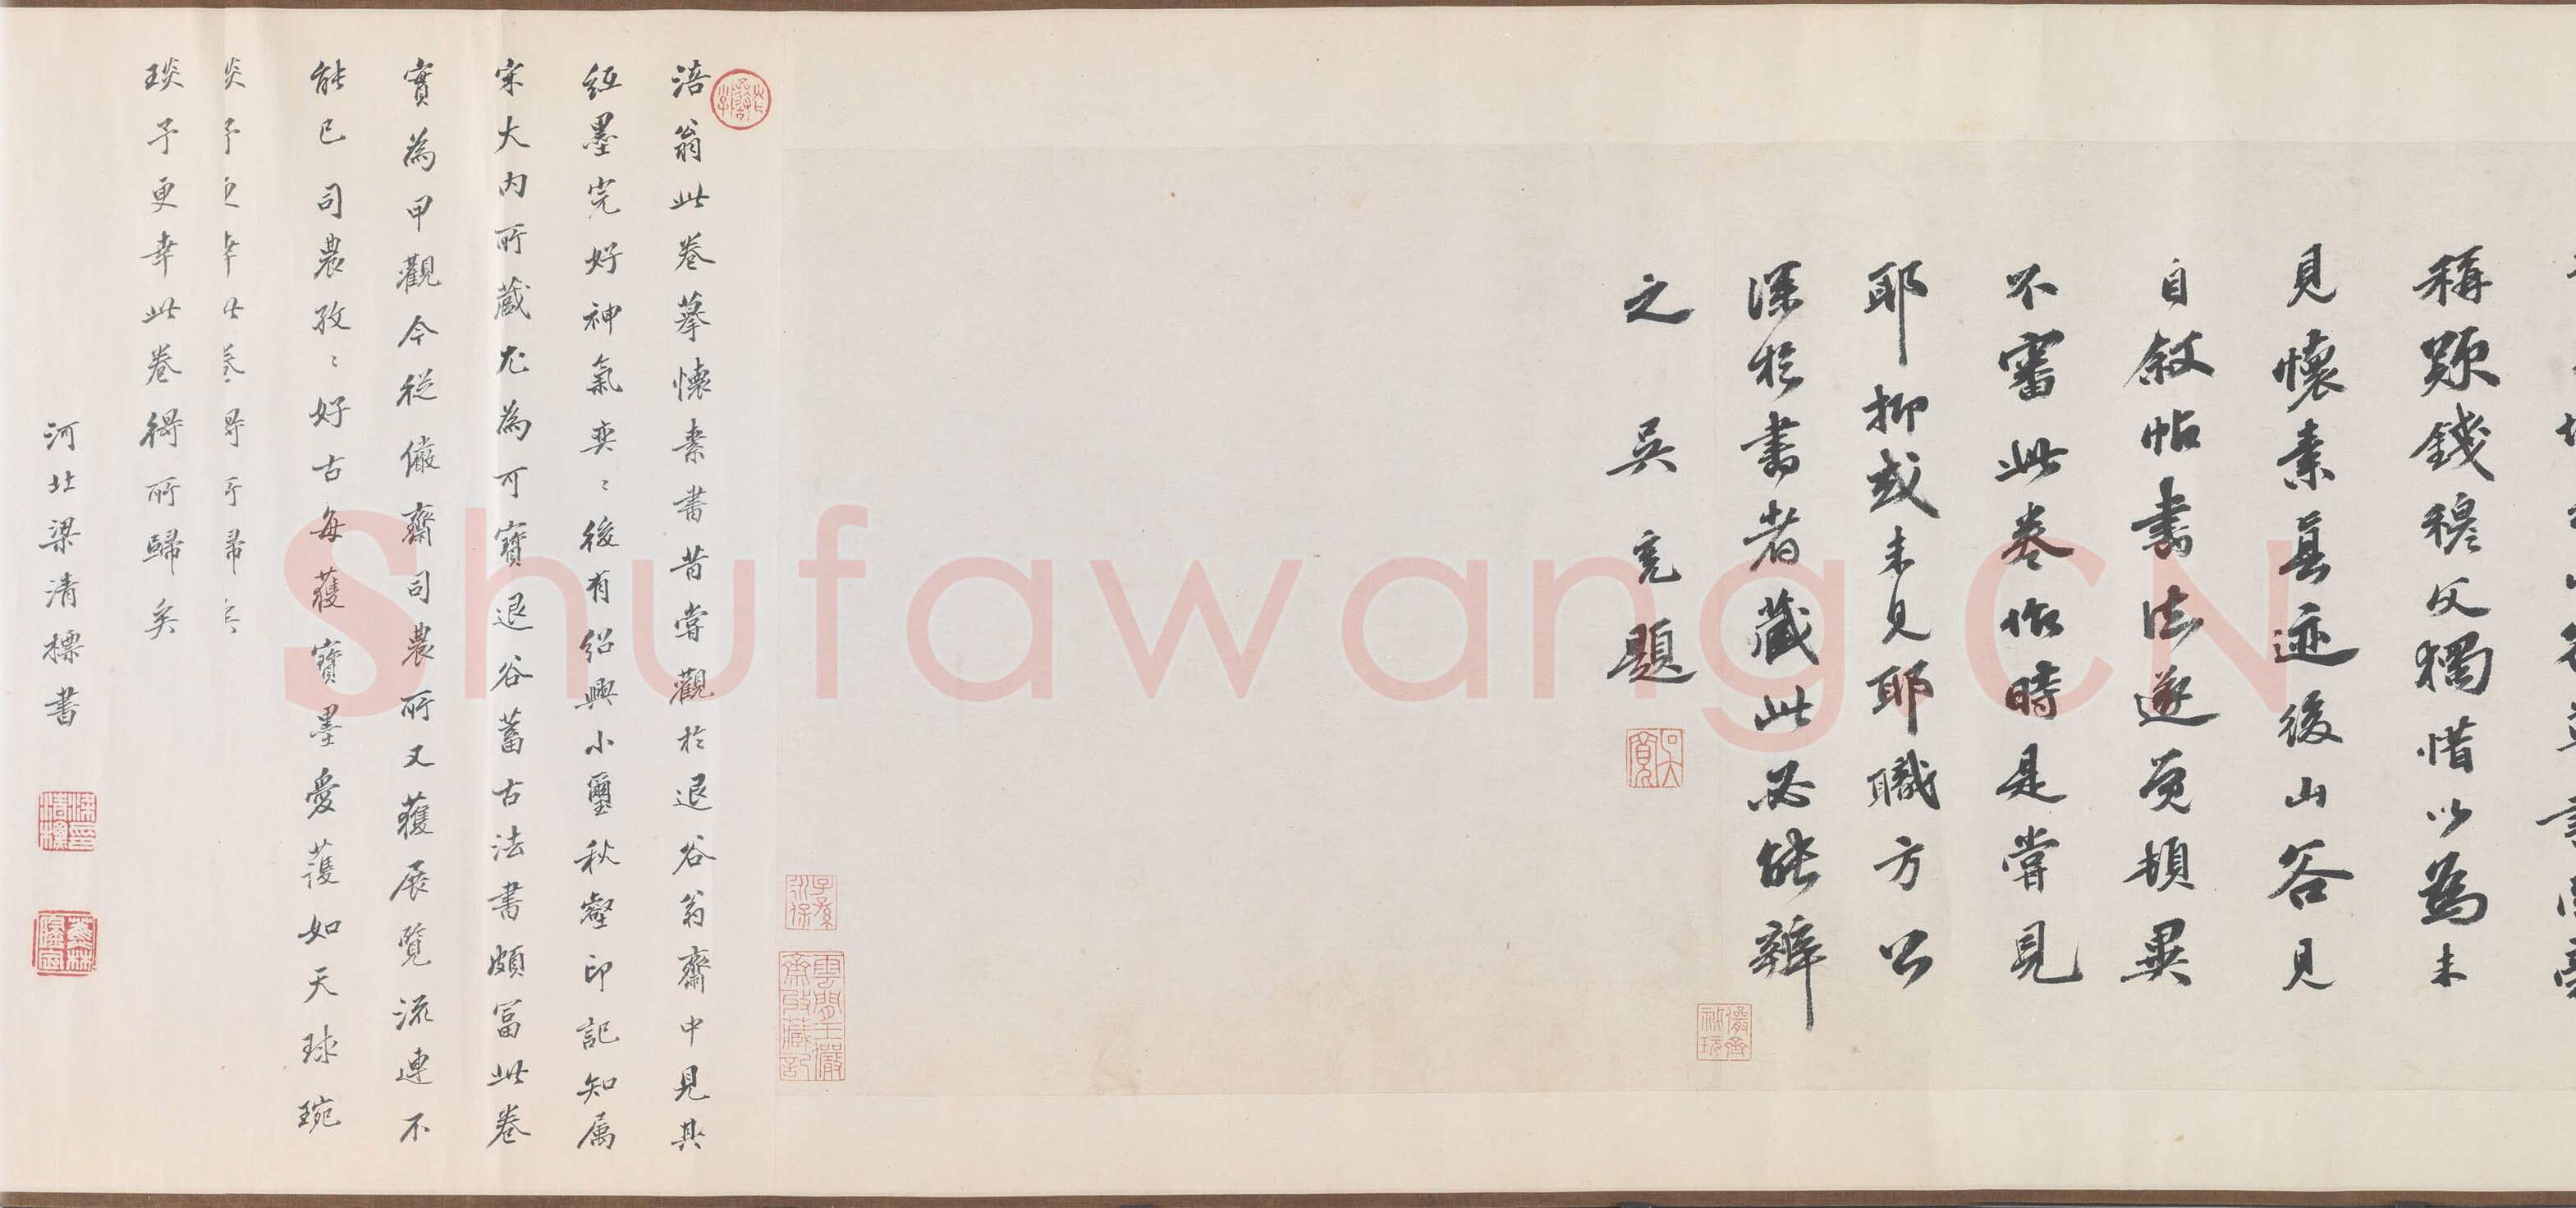 稱歟錢穆父獨惜以爲未
見懷素真迹後山谷見
自敘帖書法遂覺頓異
不審此卷作時是嘗見
耶抑或未見耶職方公
深於書者藏此必能辨
之 吳寬題
涪翁此卷摹懷素書昔嘗觀於退谷翁齋中見其
紙墨完好神氣奕〻後有紹興小璽秋壑印記知屬
宋大內所藏尤為可寶退谷蓄古法書頗富此卷
實為甲觀今從儼齋司農所又獲展覽流連不
能已司農孜〻好古每獲寶墨愛護如天球琬
琰予更幸此卷得所歸矣
河北梁清標書
儼齋秘玩
子孫永保
雲間王儼齋收藏記
蕉林
Shufawang.CN